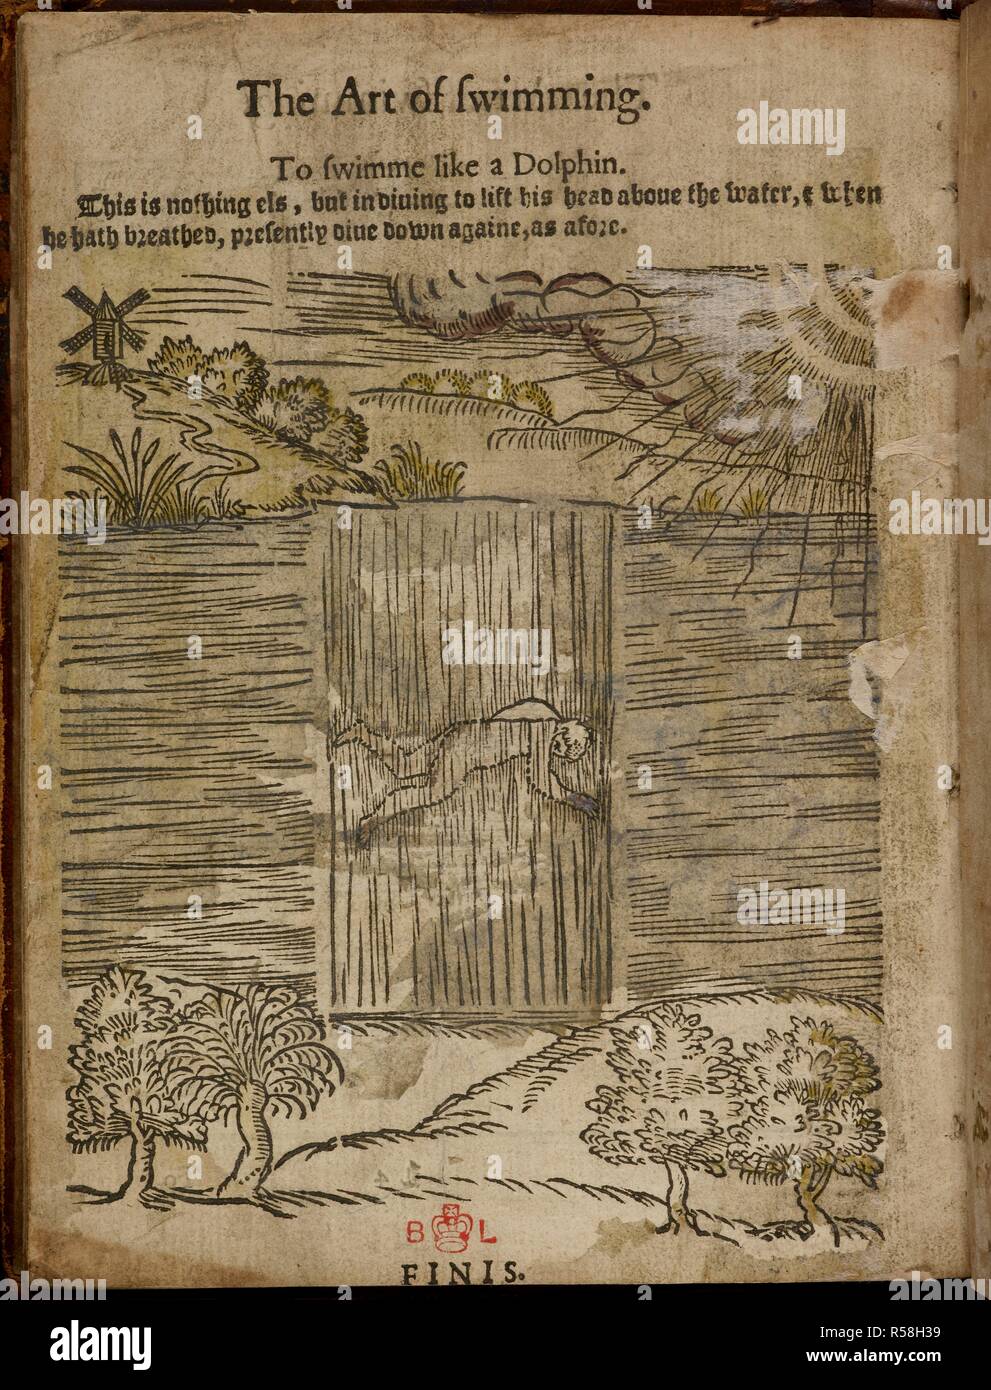 The Art of ſwimming.
To ſwimme like a Dolphin.
This is nothing els, but in diuing to lift his head aboue the water, & when
he hath breathed, preſently diue down againe, as afore.
B L
FINIS.
alamy
alamy
alamy
alamy
a
a
a
a
a
a
alamy
Image ID: R58H39
www.alamy.com